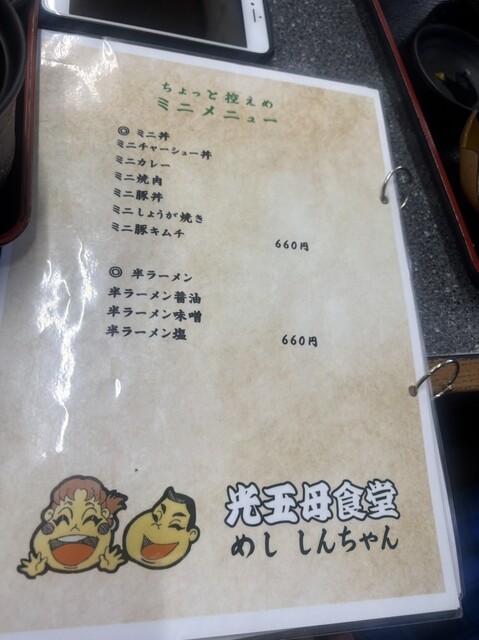 ちょっと控えめ
ミニメニュー
◎ ミニ丼
ミニチャーシュー丼
ミニカレー
ミニ焼肉
ミニ豚丼
ミニしょうが焼き
ミニ豚キムチ
660円
◎ 半ラーメン
半ラーメン醤油
半ラーメン味噌
半ラーメン塩
660円
光玉母食堂
めし しんちゃん